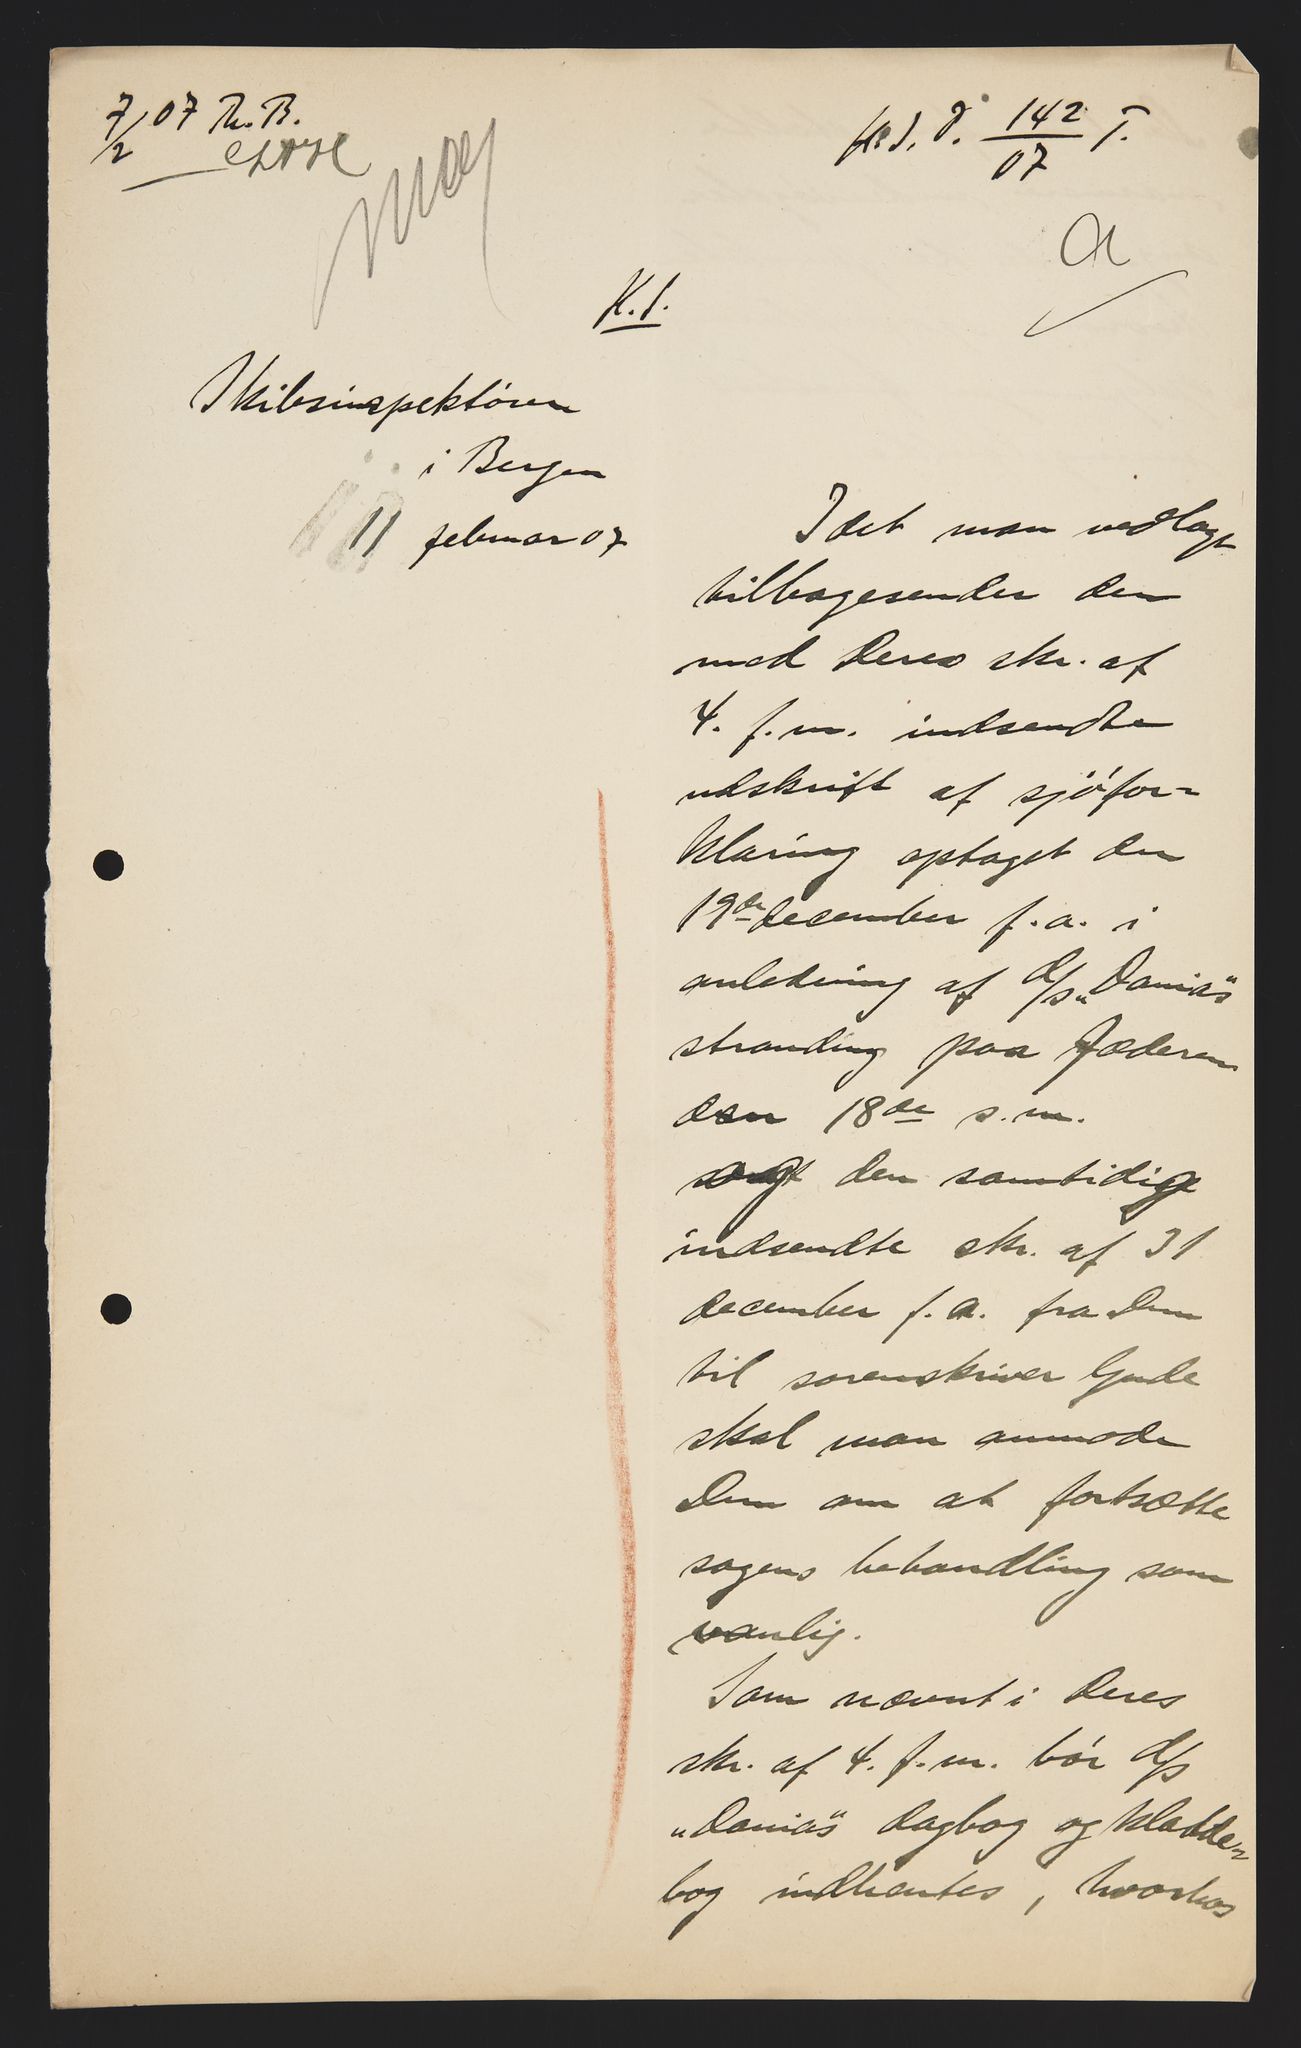 7/2 07 Th. B.
J. 142/07 T.
K. S.
Skibsinspektøren
i Bergen
11 februar 07
Idet man vedlagt
tilbagesender den
med Deres skr. af
4. f.m. indsendte
udskrift af sjöfor=
klaring optaget den
19de december f.a. i
anledning af D/S „Danias"
stranding paa Jæderen
den 18de s.m.
og den samtidige
indsendte skr. af 31
december f.a. fra Dem
til sorenskriver Gude
skal man anmode
Dem om at fortsætte
sagens behandling som
vanlig.
Som nævnt i Deres
skr. af 4. f.m. bör D/S
„Danias" dagbog og kladde=
bog indhentes, hvorhos